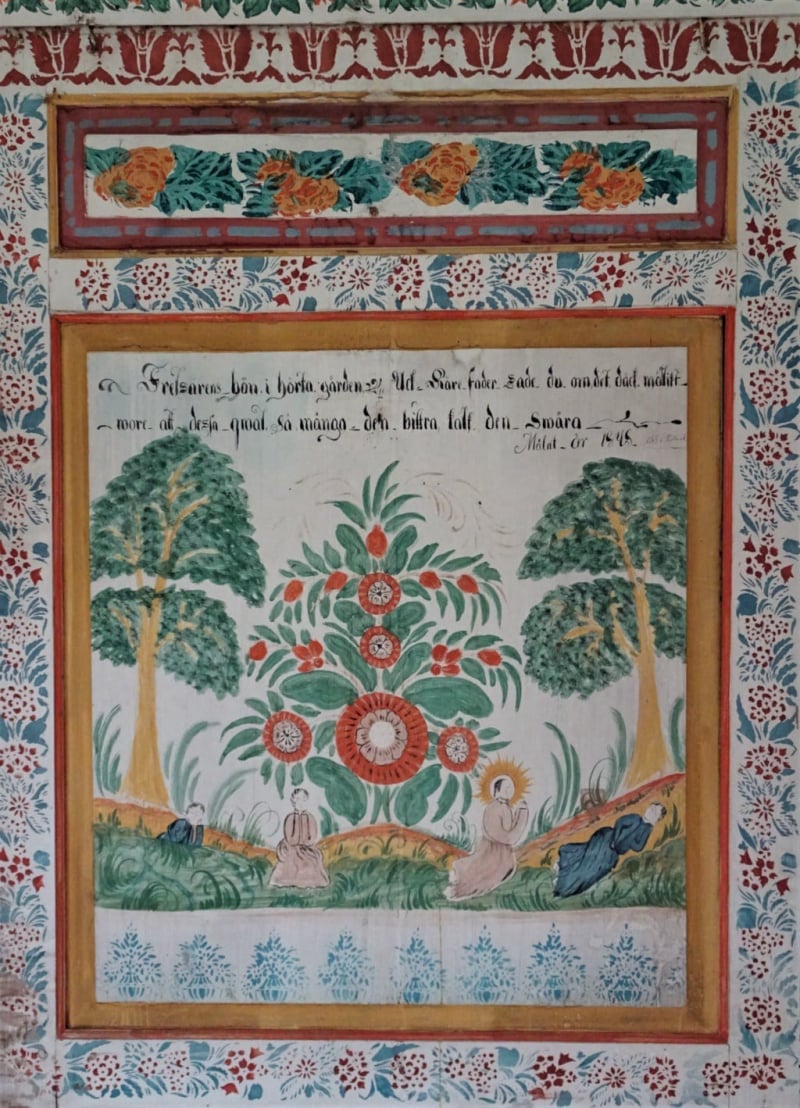 Frelsarens bön i hörta gården Ack Käre fader sade du om det dock möiligt
wore att dessa qwal så många den bittra kalk den Swåra
Målat år 1848